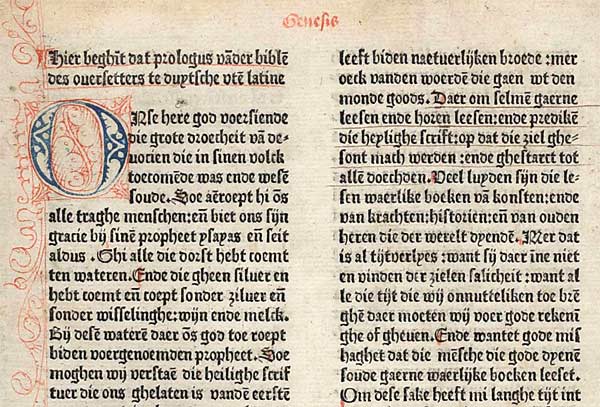 Genesis
Hier beghīt dat prologus vāder biblē
des ouersetters te duytsche vtē latine
ONse here god voersiende
die grote droerheit vā de=
uocien die in sinen volck
toecomēde was ende wesē
soude. Soe aēroept hi ōs
alle traghe menschen: eñ biet ons sijn
gracie bij sinē propheet ysayas eñ seit
aldus . Ghi alle die dorst hebt coemt
ten wateren. Ende die gheen siluer en
hebt coemt eñ coept sonder ziluer eñ
sonder wisselinghe: wijn ende melck.
Bij desē waterē daer ōs god toe roept
biden voergenoemden propheet. Soe
moghen wij verstaē die heilighe scrif
tuer die ons ghelaten is vandē eerstē
leeft biden naetuerlijken broede : mer
oeck vanden woerdē die gaen wt den
monde goods. Daer om selmē gaerne
leesen ende horen leesen: ende predikē
die heylighe scrift: op dat die ziel ghe=
sont mach werden : ende ghestarct tot
allē doechden. Veel luyden sijn die le=
sen waerlike boeken vā konsten: ende
van krachten: historien: eñ van ouden
heren die der werelt dyendē. Mer dat
is al tijtverlyes : want sij daer īne niet
en vinden der zielen salicheit : want al
le die tijt die wij onnutteliken toe brē
ghē daer moeten wij voer gode rekenī
ghe of gheuen. Ende wantet gode mis
haghet dat die mēsche die gode dyenē
soude gaerne waerlijke boeken leeset.
Om dese sake heeft mi langhe tijt int